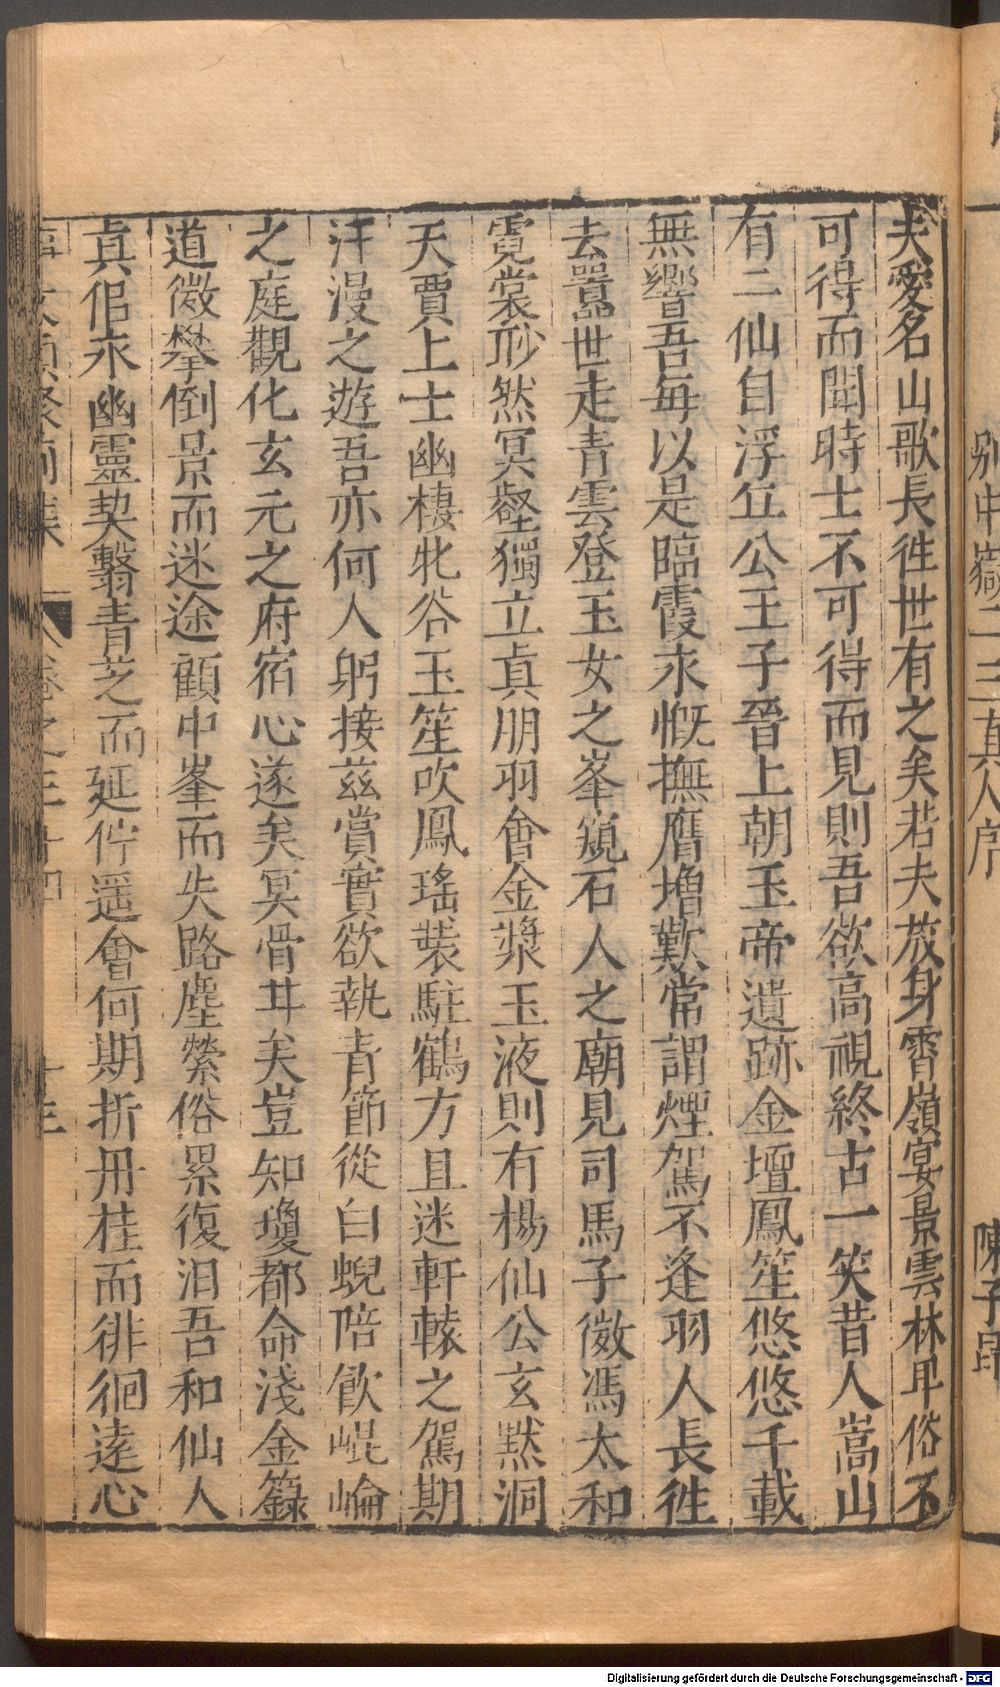 别中嶽二三真人序
陳子昂
夫愛名山歌長徃世有之矣若夫放身霄嶺宴景雲林耳俗不
可得而聞時士不可得而見則吾欲高視終古一笑昔人嵩山
有二仙自浮丘公王子晉上朝玉帝遺跡金壇鳳笙悠悠千載
無響吾每以是臨霞永慨撫膺增歎常謂煙駕不逢羽人長徃
去囂世走青雲登玉女之峯窺石人之廟見司馬子微馮太和
霓裳眇然冥壑獨立真朋羽會金漿玉液則有楊仙公玄默洞
天賈上士幽棲牝谷玉笙吹鳳瑤裝駐鶴方且迷軒轅之駕期
汗漫之遊吾亦何人躬接茲賞實欲執青節從白蜺陪飲崐崘
之庭觀化玄元之府宿心遂矣冥骨甘矣豈知瓊都命淺金籙
道微攀倒景而迷途顧中峯而失路塵縈俗累復汨吾和仙人
真侣永幽靈契翳青芝而延佇遥會何期折丹桂而徘徊遠心
事文類聚前集
卷之三十四
十三
Digitalisierung gefördert durch die Deutsche Forschungsgemeinschaft - DFG